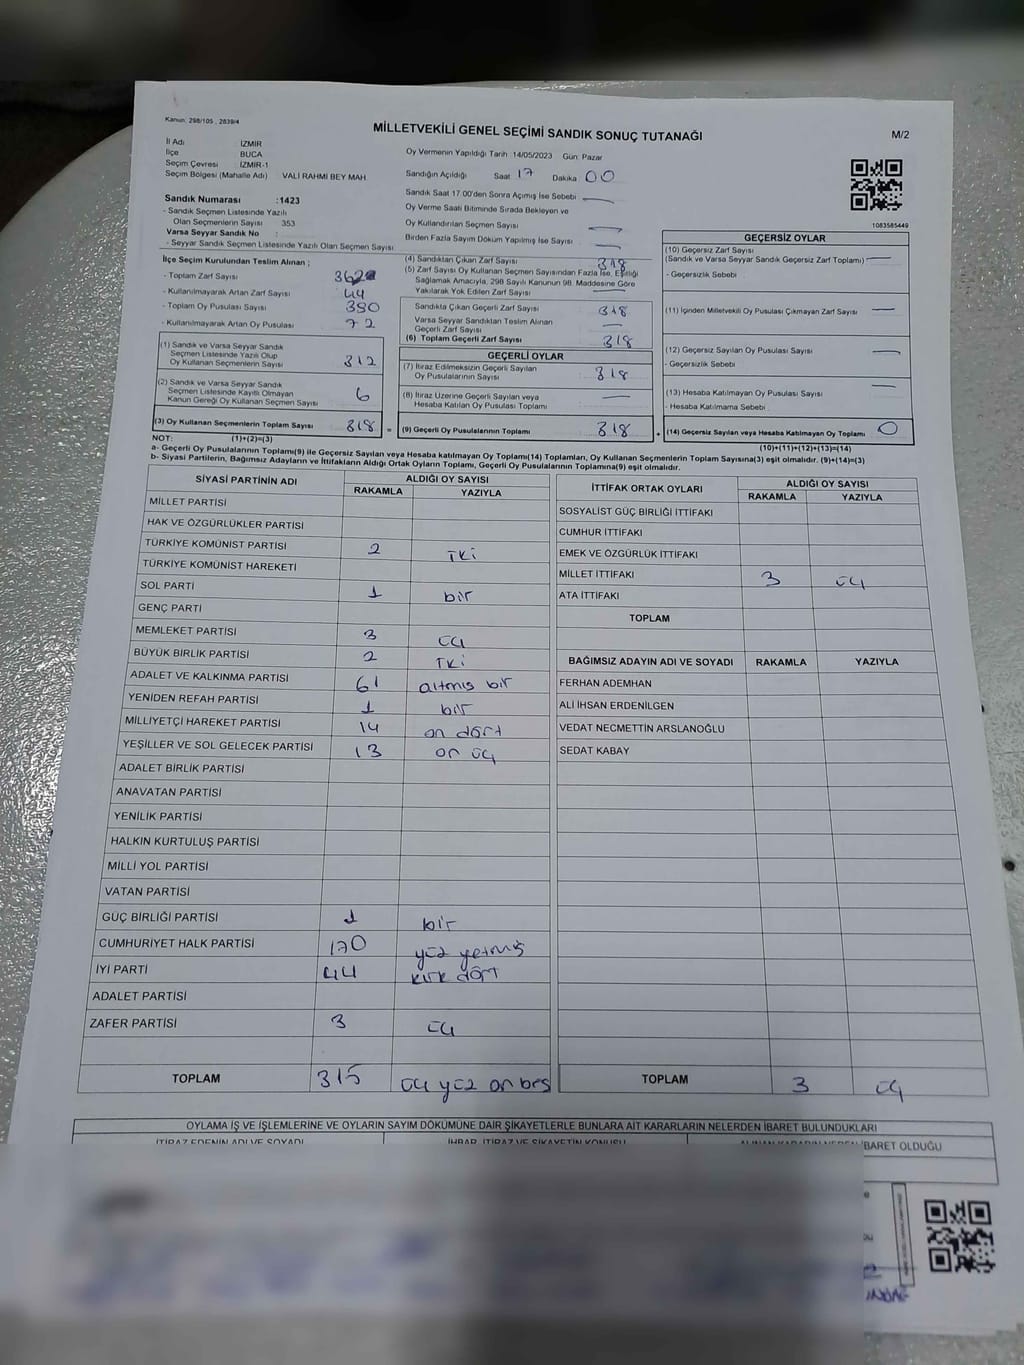 Kanun: 298/105 , 2839/4
MİLLETVEKİLİ GENEL SEÇİMİ SANDIK SONUÇ TUTANAĞI
M/2
İl Adı İZMİR
İlçe BUCA
Seçim Çevresi İZMİR-1
Seçim Bölgesi (Mahalle Adı) VALİ RAHMİ BEY MAH
Oy Vermenin Yapıldığı Tarih 14/05/2023 Gün: Pazar
Sandığın Açıldığı Saat 17 Dakika 00
Sandık Saat 17.00'den Sonra Açımış İse Sebebi
Oy Verme Saati Bitiminde Sırada Bekleyen ve
Oy Kullandırılan Seçmen Sayısı
Birden Fazla Sayım Döküm Yapılmış İse Sayısı
1083585449
Sandık Numarası :1423
- Sandık Seçmen Listesinde Yazılı
Olan Seçmenlerin Sayısı 353
Varsa Seyyar Sandık No :
- Seyyar Sandık Seçmen Listesinde Yazılı Olan Seçmen Sayısı
İlçe Seçim Kurulundan Teslim Alınan ;
- Toplam Zarf Sayısı 362
- Kullanılmayarak Artan Zarf Sayısı 44
- Toplam Oy Pusulası Sayısı 390
- Kullanılmayarak Artan Oy Pusulası 72
(1) Sandık ve Varsa Seyyar Sandık
Seçmen Listesinde Yazılı Olup
Oy Kullanan Seçmenlerin Sayısı 312
(2) Sandık ve Varsa Seyyar Sandık
Seçmen Listesinde Kayıtlı Olmayan
Kanun Gereği Oy Kullanan Seçmen Sayısı 6
(3) Oy Kullanan Seçmenlerin Toplam Sayısı 318 =
(4) Sandıktan Çıkan Zarf Sayısı 318
(5) Zarf Sayısı Oy Kullanan Seçmen Sayısından Fazla İse, Eşitliği
Sağlamak Amacıyla, 298 Sayılı Kanunun 98. Maddesine Göre
Yakılarak Yok Edilen Zarf Sayısı
Sandıkta Çıkan Geçerli Zarf Sayısı 318
Varsa Seyyar Sandıktan Teslim Alınan
Geçerli Zarf Sayısı
(6) Toplam Geçerli Zarf Sayısı 318
GEÇERLİ OYLAR
(7) İtiraz Edilmeksizin Geçerli Sayılan
Oy Pusulalarının Sayısı 318
(8) İtiraz Üzerine Geçerli Sayılan veya
Hesaba Katılan Oy Pusulası Toplamı
(9) Geçerli Oy Pusulalarının Toplamı 318 +
GEÇERSİZ OYLAR
(10) Geçersiz Zarf Sayısı
(Sandık ve Varsa Seyyar Sandık Geçersiz Zarf Toplamı)
- Geçersizlik Sebebi
(11) İçinden Milletvekili Oy Pusulası Çıkmayan Zarf Sayısı
(12) Geçersiz Sayılan Oy Pusulası Sayısı
- Geçersizlik Sebebi
(13) Hesaba Katılmayan Oy Pusulası Sayısı
- Hesaba Katılmama Sebebi
(14) Geçersiz Sayılan veya Hesaba Katılmayan Oy Toplamı 0
NOT: (1)+(2)=(3) (10)+(11)+(12)+(13)=(14)
a- Geçerli Oy Pusulalarının Toplamı(9) ile Geçersiz Sayılan veya Hesaba katılmayan Oy Toplamı(14) Toplamları, Oy Kullanan Seçmenlerin Toplam Sayısına(3) eşit olmalıdır. (9)+(14)=(3)
b- Siyasi Partilerin, Bağımsız Adayların ve İttifakların Aldığı Ortak Oyların Toplamı, Geçerli Oy Pusulalarının Toplamına(9) eşit olmalıdır.
SİYASİ PARTİNİN ADI ALDIĞI OY SAYISI
RAKAMLA YAZIYLA
MİLLET PARTİSİ
HAK VE ÖZGÜRLÜKLER PARTİSİ
TÜRKİYE KOMÜNİST PARTİSİ 2 İki
TÜRKİYE KOMÜNİST HAREKETİ
SOL PARTİ 1 bir
GENÇ PARTİ
MEMLEKET PARTİSİ 3 üç
BÜYÜK BİRLİK PARTİSİ 2 İki
ADALET VE KALKINMA PARTİSİ 61 altmış bir
YENİDEN REFAH PARTİSİ 1 bir
MİLLİYETÇİ HAREKET PARTİSİ 14 on dört
YEŞİLLER VE SOL GELECEK PARTİSİ 13 on üç
ADALET BİRLİK PARTİSİ
ANAVATAN PARTİSİ
YENİLİK PARTİSİ
HALKIN KURTULUŞ PARTİSİ
MİLLİ YOL PARTİSİ
VATAN PARTİSİ
GÜÇ BİRLİĞİ PARTİSİ 1 bir
CUMHURİYET HALK PARTİSİ 170 yüz yetmiş
İYİ PARTİ 44 kırk dört
ADALET PARTİSİ
ZAFER PARTİSİ 3 üç
TOPLAM 315 üç yüz on beş
İTTİFAK ORTAK OYLARI ALDIĞI OY SAYISI
RAKAMLA YAZIYLA
SOSYALİST GÜÇ BİRLİĞİ İTTİFAKI
CUMHUR İTTİFAKI
EMEK VE ÖZGÜRLÜK İTTİFAKI
MİLLET İTTİFAKI 3 üç
ATA İTTİFAKI
TOPLAM
BAĞIMSIZ ADAYIN ADI VE SOYADI RAKAMLA YAZIYLA
FERHAN ADEMHAN
ALİ İHSAN ERDENİLGEN
VEDAT NECMETTİN ARSLANOĞLU
SEDAT KABAY
TOPLAM 3 üç
OYLAMA İŞ VE İŞLEMLERİNE VE OYLARIN SAYIM DÖKÜMÜNE DAİR ŞİKAYETLERLE BUNLARA AİT KARARLARIN NELERDEN İBARET BULUNDUKLARI
İTİRAZ EDENİN ADI VE SOYADI İHBAR, İTİRAZ VE ŞİKAYETİN KONUSU ALINAN KARARIN NEDEN İBARET OLDUĞU